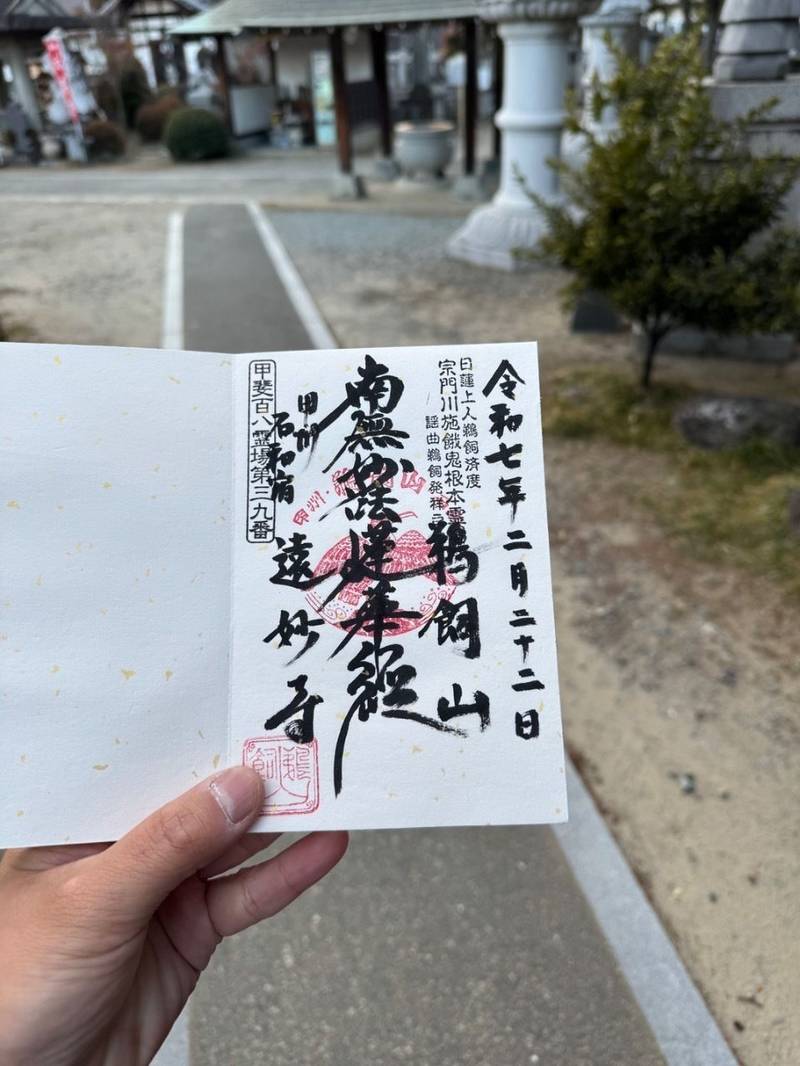 令和七年二月二十二日
日蓮上人鵜飼済度
宗門川施餓鬼根本霊
謡曲鵜飼発祥之
鵜飼山
南無妙法蓮華経
甲州
石和宿
遠妙寺
甲斐百八霊場第三九番